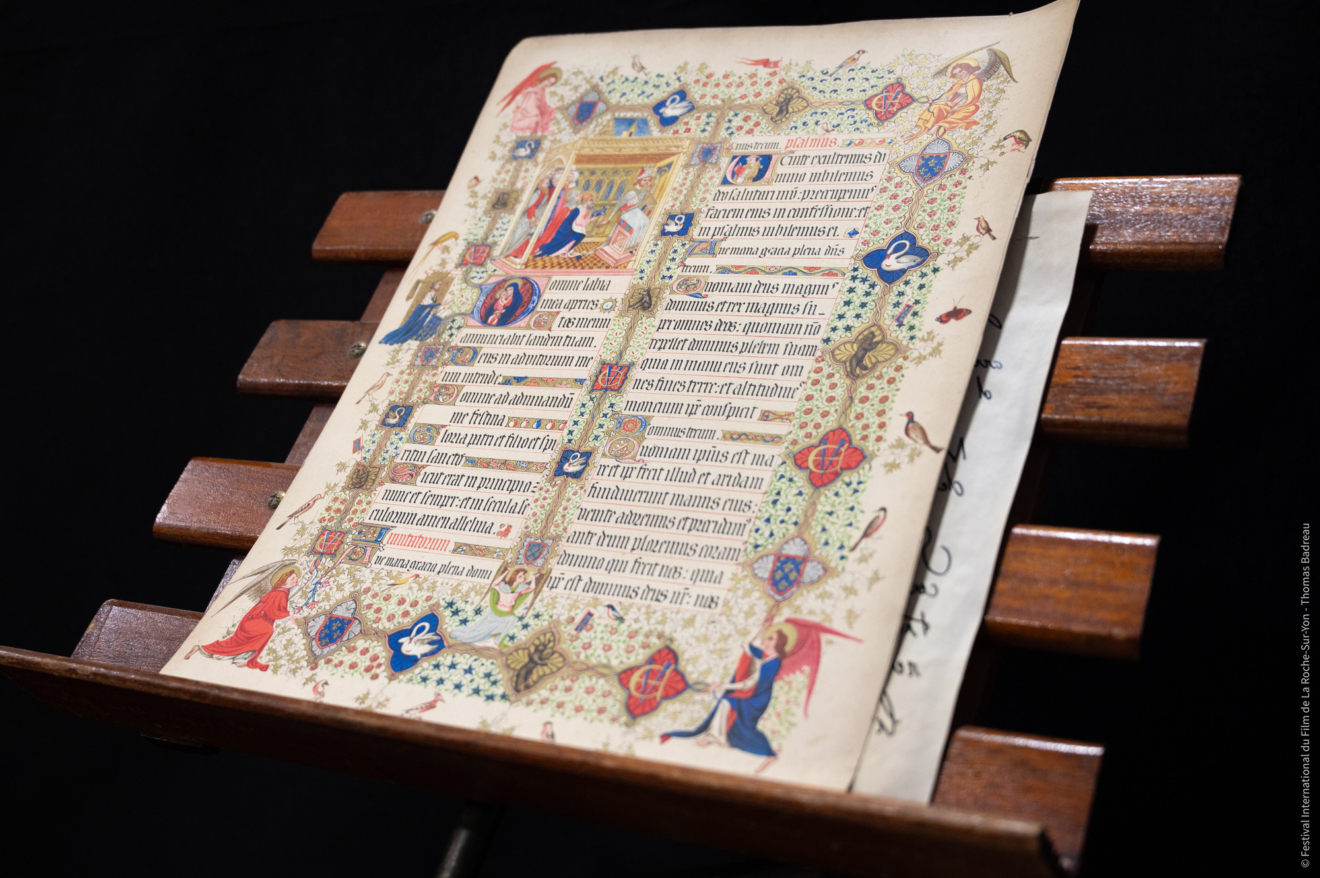 Domine labia
mea aperies
et os meum
annunciabit laudem tuam.
Deus in adiutorium me
um intende.
Domine ad adiuuandū
me festina
Gloria patri et filio et spi
ritui sancto
Sicut erat in principio:
nunc et semper: et in secula se
culorum amen alleluia.
Inuitatorium.
Aue maria gracia plena domi
nus tecum. psalmus.
Uenite exultemus do
mino iubilemus
deo salutari nr̄o: preocupemus
faciem eius in confessione: et
in psalmis iubilemus ei.
Aue maria gracia plena dn̄s
tecum.
Quoniam deus magnus
dominus et rex magnus su
per omnes deos: quoniam nō
repellet dominus plebem suam
quia in manu eius sunt om
nes fines terre: et altitudines
moncium ip̄e conspicit
Dominus tecum.
Quoniam ipsius est ma
re et ip̄e fecit illud et aridam
fundauerunt manus eius:
uenite adoremus et procidamus
ante deum ploremus coram
domino qui fecit nos: quia
ip̄e est dominus deus nr̄: nos
© Festival International du Film de La Roche-Sur-Yon - Thomas Badreau